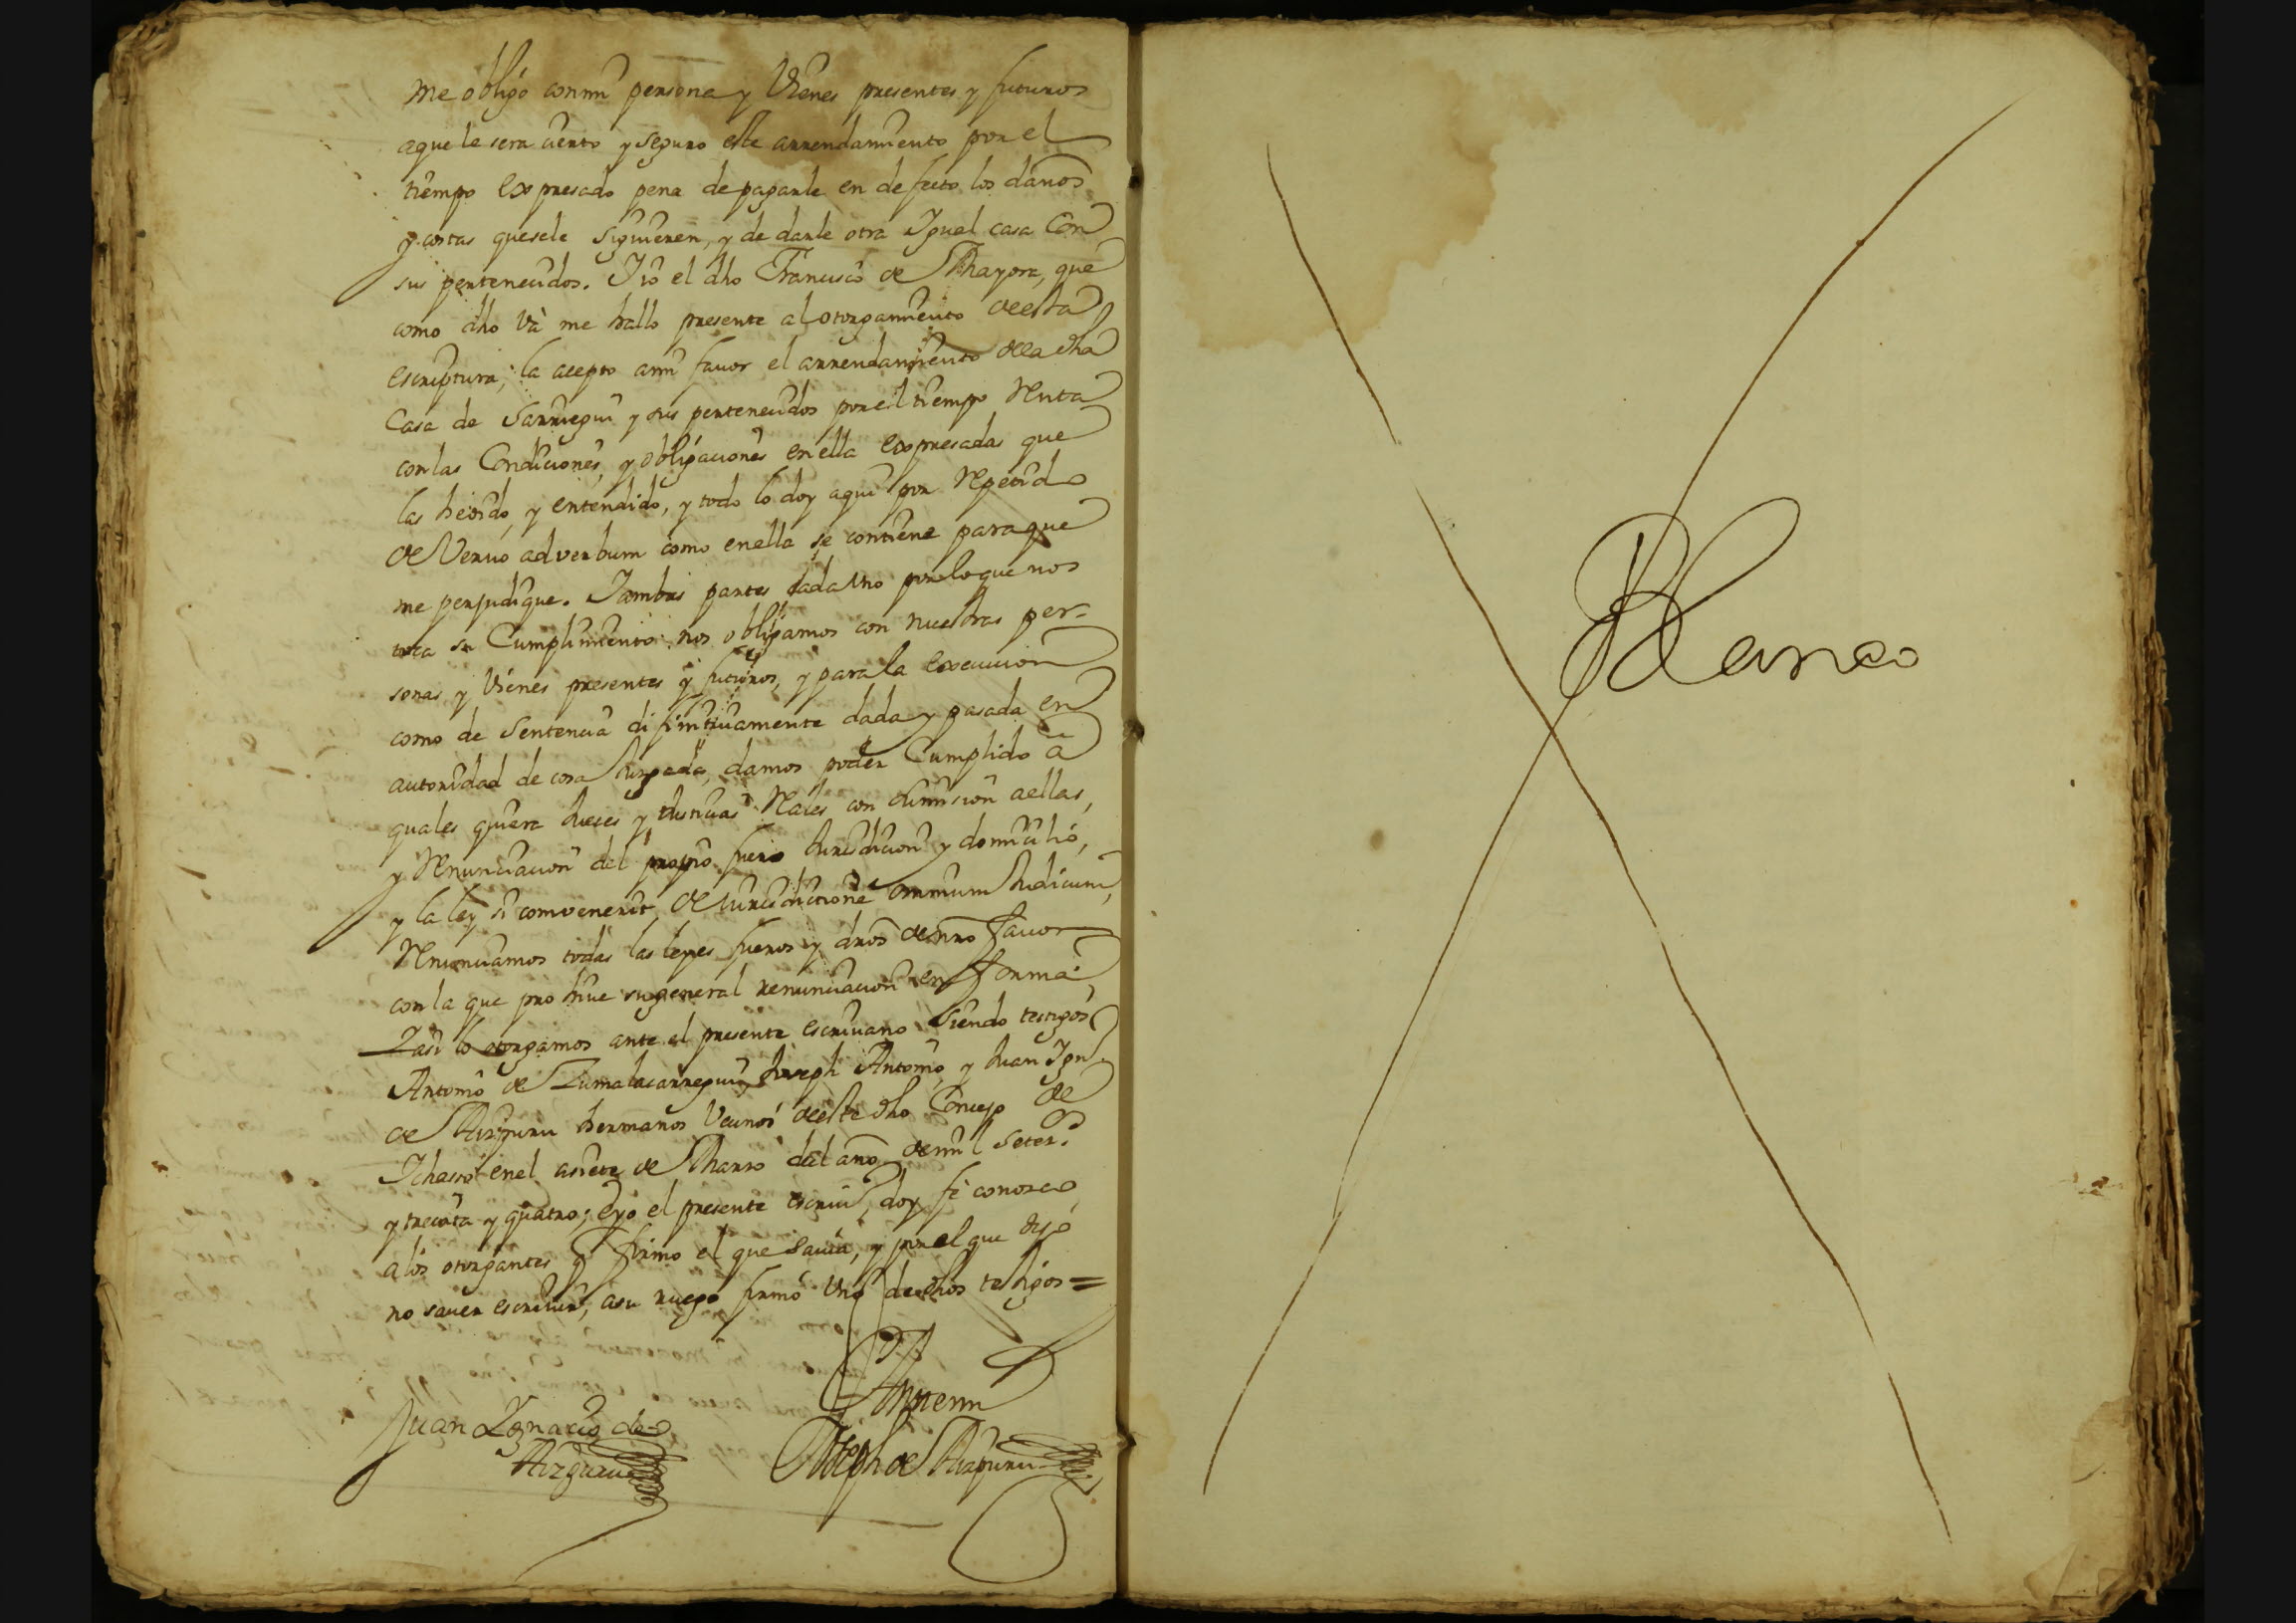 me obligo con mi persona y Vienes presentes y futuros
aque le sera cierto y seguro este arrendamiento por el
tiempo expresado pena de pagarle en defecto los daños
y costas quesele siguieren, y de darle otra Igual casa Con
sus pertenecidos. I io el dho Francisco de Mayora, que
como dho và me hallo presente al otorgamiento deesta
escriptura, la acepto ami fauor el arrendamiento dela dha
Casa de Sarriegui y sus pertenecidos por el tiempo Renta
con las Condiciones, y obligaciones en ella expresadas que
las he oido, y entendido, y todo lo doy aqui por Repetido
de Veruo ad verbum como enella se contiene paraque
me perjudique. I ambas partes cada Vno por loque nos
toca su Cumplimiento nos obligamos con nuestras per-
sonas y Vienes presentes y futuros, y para la execucion
como de Sentencia difinitiuamente dada y pasada en
autoridad de cosa Juzgada, damos poder Cumplido à
quales quiera Jueces y Justicias Reales con sumision aellas,
y Renunciacion del propio fuero Jurisdicion y domicilio,
y la ley si convenerit, de iurisdictione omnium Judicum,
Renunciamos todas las leyes fueros y dros de nro fauor
con la que prohiue su general renunciacion en forma,
I asi lo otorgamos ante el presente escriuano siendo testigos
Antonio de Zumalacarregui, Joseph Antonio, y Juan Ign.o
de Aizguru hermanos Vecinos deeste dho Concejo de
Ichasso enel asiete de Marzo del año de mil Setez.s
y treinta y quatro; e yo el presente escriu.o doy fè conozco
a los otorgantes y firmo el que sauia, y por el que dijo
no sauer escriuir, asu ruego firmò Vno de dhos testigos =
Juan Ygnacio de
Aizguru
Ante mi
Joseph de Aizpuru
Blanco